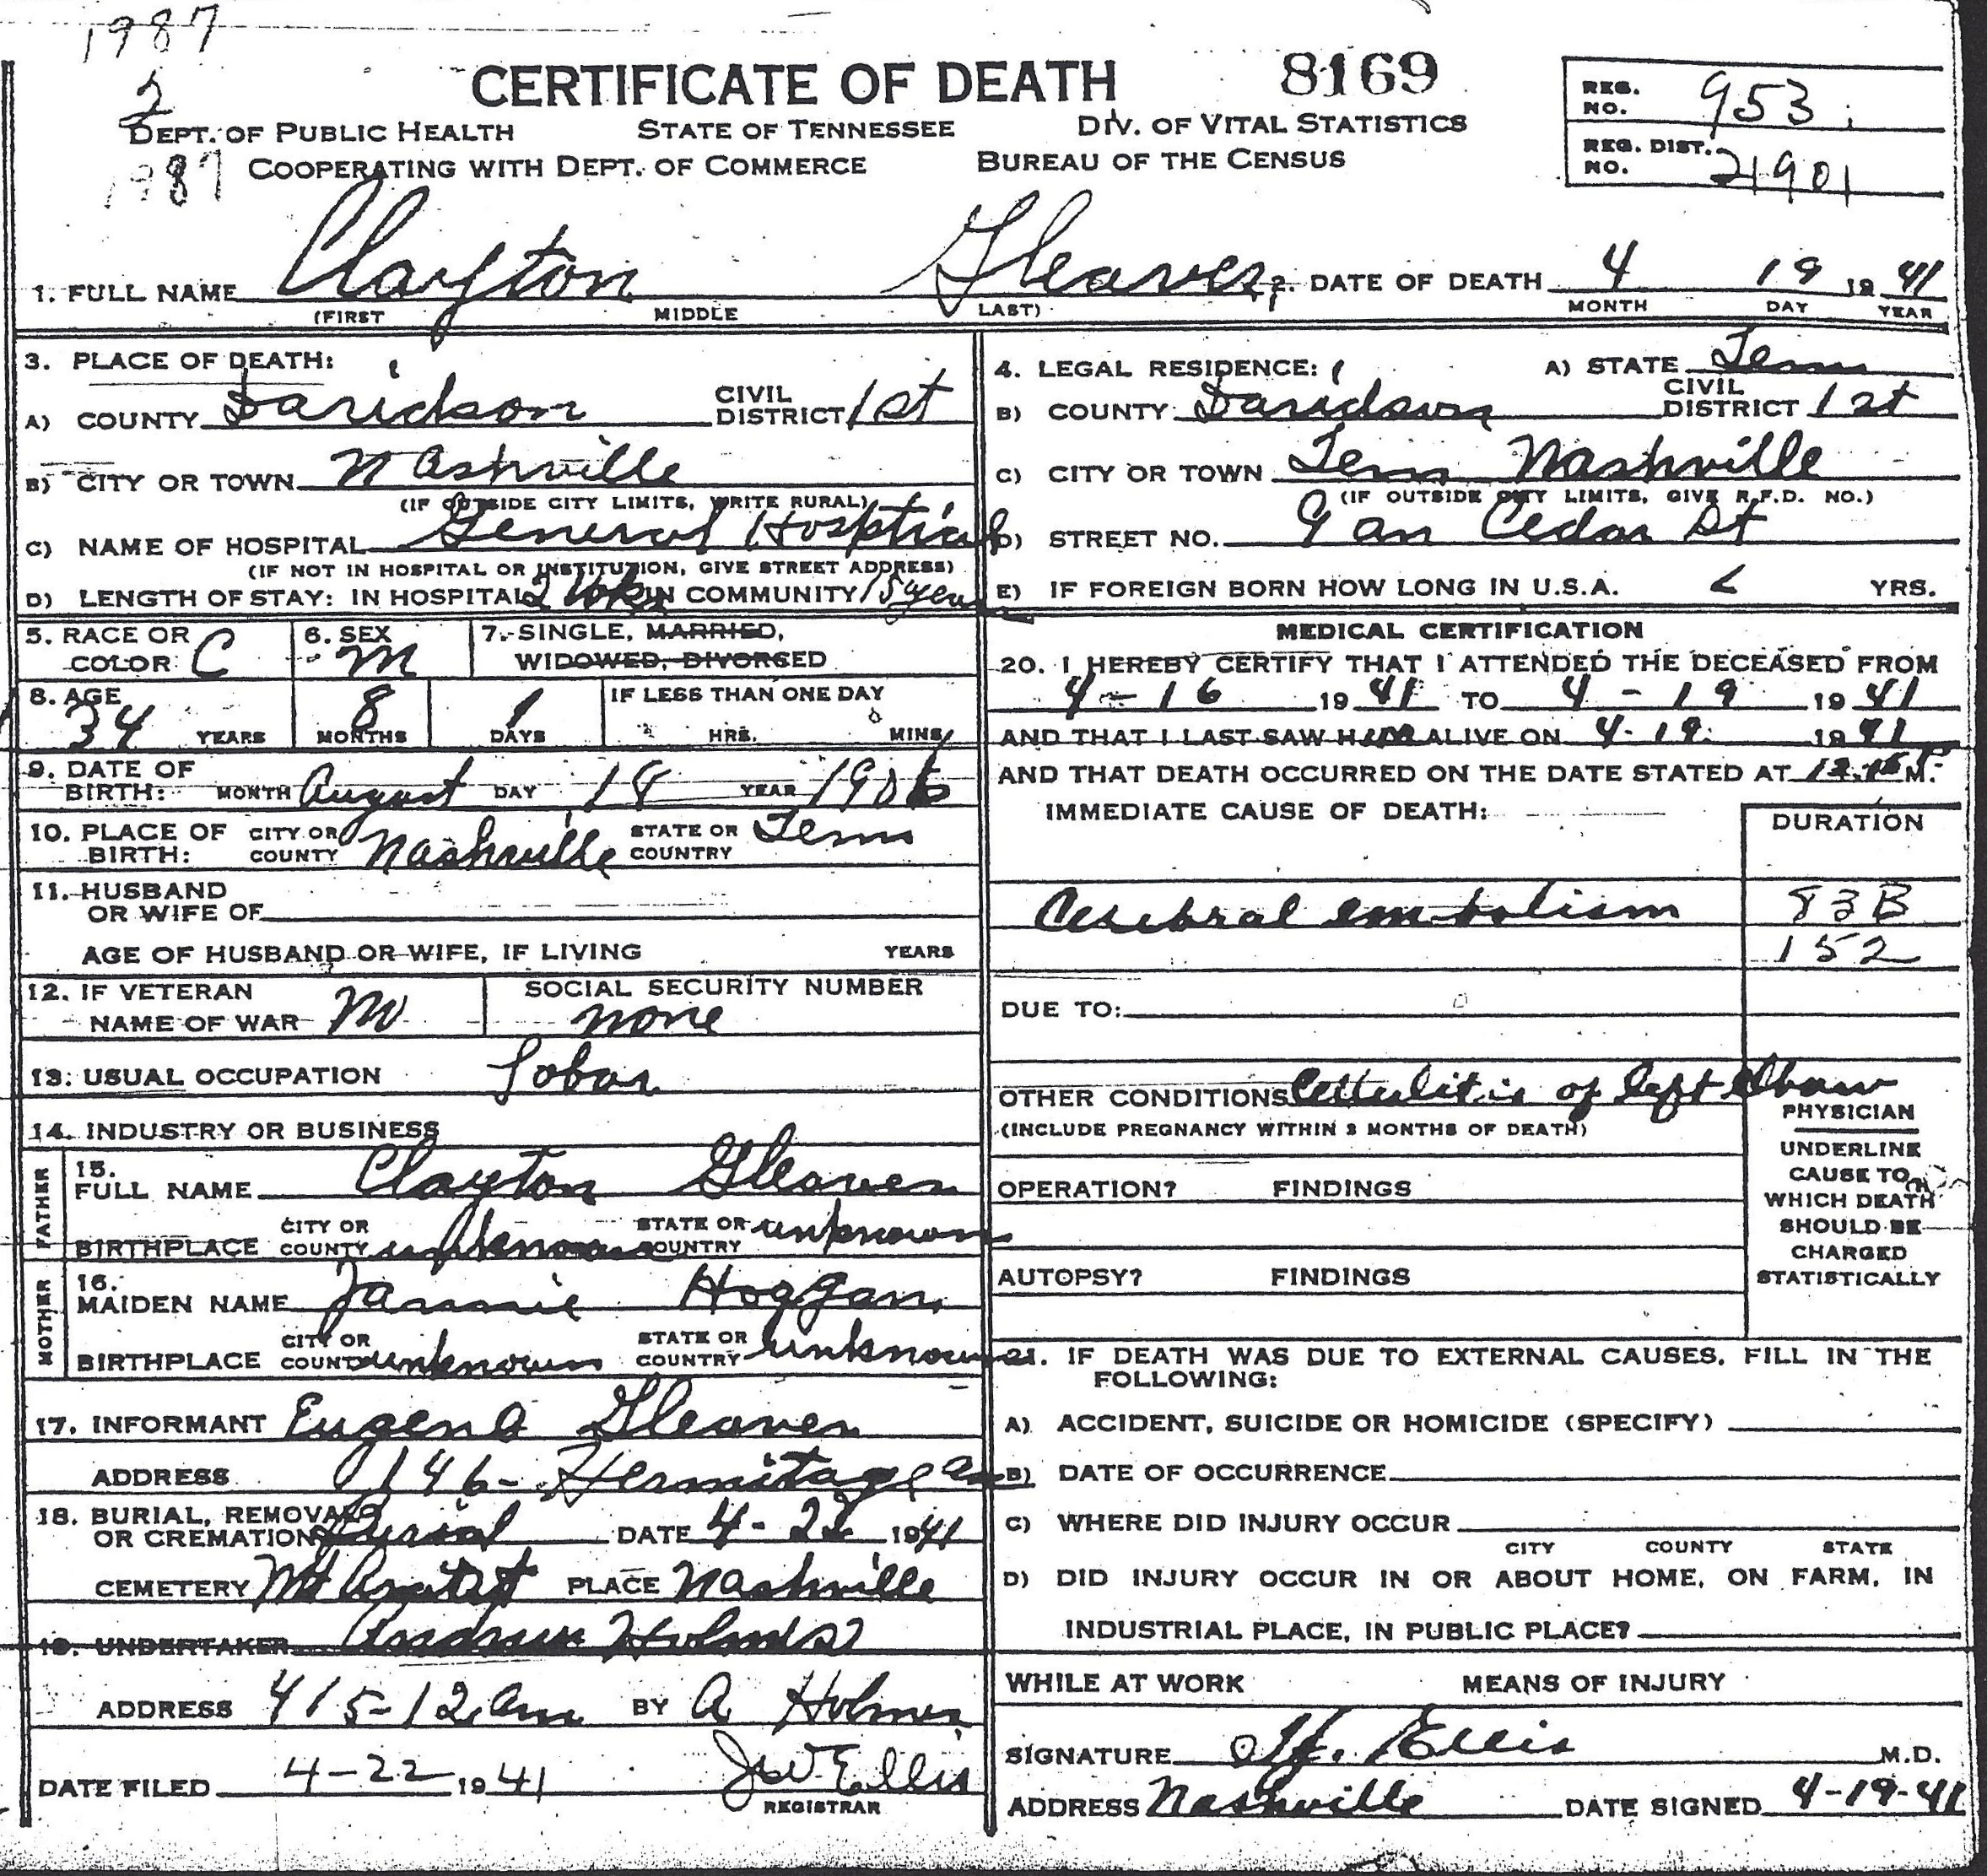 1987
2
CERTIFICATE OF DEATH 8169
REG. NO. 953
DEPT. OF PUBLIC HEALTH STATE OF TENNESSEE DIV. OF VITAL STATISTICS
1987 COOPERATING WITH DEPT. OF COMMERCE BUREAU OF THE CENSUS
REG. DIST. NO. 21901
1. FULL NAME Clayton Gleaves 2. DATE OF DEATH 4 19 19 41
(FIRST MIDDLE LAST) MONTH DAY YEAR
3. PLACE OF DEATH:
A) COUNTY Davidson CIVIL DISTRICT 1st
B) CITY OR TOWN Nashville
(IF OUTSIDE CITY LIMITS, WRITE RURAL)
C) NAME OF HOSPITAL General Hosptial
(IF NOT IN HOSPITAL OR INSTITUTION, GIVE STREET ADDRESS)
D) LENGTH OF STAY: IN HOSPITAL 2 wks IN COMMUNITY 15 years
4. LEGAL RESIDENCE: A) STATE Tenn
B) COUNTY Davidson CIVIL DISTRICT 1st
C) CITY OR TOWN Tenn Nashville
(IF OUTSIDE CITY LIMITS, GIVE R.F.D. NO.)
D) STREET NO. Cedar St
E) IF FOREIGN BORN HOW LONG IN U.S.A. YRS.
5. RACE OR COLOR C 6. SEX M 7. SINGLE, MARRIED,
WIDOWED, DIVORCED
8. AGE 34 YEARS 8 MONTHS 1 DAYS IF LESS THAN ONE DAY HRS. MINS.
9. DATE OF BIRTH: MONTH August DAY 18 YEAR 1906
10. PLACE OF BIRTH: CITY OR COUNTY Nashville STATE OR COUNTRY Tenn
11. HUSBAND
OR WIFE OF
AGE OF HUSBAND OR WIFE, IF LIVING YEARS
12. IF VETERAN NAME OF WAR no SOCIAL SECURITY NUMBER none
13. USUAL OCCUPATION Lobor
14. INDUSTRY OR BUSINESS
FATHER
15. FULL NAME Clayton Gleaves
BIRTHPLACE CITY OR COUNTY unknown STATE OR COUNTRY unknown
MOTHER
16. MAIDEN NAME Jannie Hoggan
BIRTHPLACE CITY OR COUNTY unknown STATE OR COUNTRY unknown
17. INFORMANT Eugene Gleaves
ADDRESS 146- Hermitage
18. BURIAL, REMOVAL OR CREMATION Burial DATE 4-22 1941
CEMETERY Mt PLACE Nashville
19. UNDERTAKER Andrew Holmes
ADDRESS 415-12 BY A Holmes
DATE FILED 4-22 1941 J W Ellis
REGISTRAR
MEDICAL CERTIFICATION
20. I HEREBY CERTIFY THAT I ATTENDED THE DECEASED FROM
4-16 19 41 TO 4-19 19 41
AND THAT I LAST SAW HIM ALIVE ON 4-19 1941
AND THAT DEATH OCCURRED ON THE DATE STATED AT M.
IMMEDIATE CAUSE OF DEATH: DURATION
Cerebral embolism 83B
152
DUE TO:
OTHER CONDITIONS Cellulitis of left elbow
(INCLUDE PREGNANCY WITHIN 3 MONTHS OF DEATH)
OPERATION? FINDINGS
AUTOPSY? FINDINGS
PHYSICIAN
UNDERLINE
CAUSE TO
WHICH DEATH
SHOULD BE
CHARGED
STATISTICALLY
21. IF DEATH WAS DUE TO EXTERNAL CAUSES, FILL IN THE
FOLLOWING:
A) ACCIDENT, SUICIDE OR HOMICIDE (SPECIFY)
B) DATE OF OCCURRENCE
C) WHERE DID INJURY OCCUR
CITY COUNTY STATE
D) DID INJURY OCCUR IN OR ABOUT HOME, ON FARM, IN
INDUSTRIAL PLACE, IN PUBLIC PLACE?
WHILE AT WORK MEANS OF INJURY
SIGNATURE Ellis M.D.
ADDRESS Nashville DATE SIGNED 4-19-41